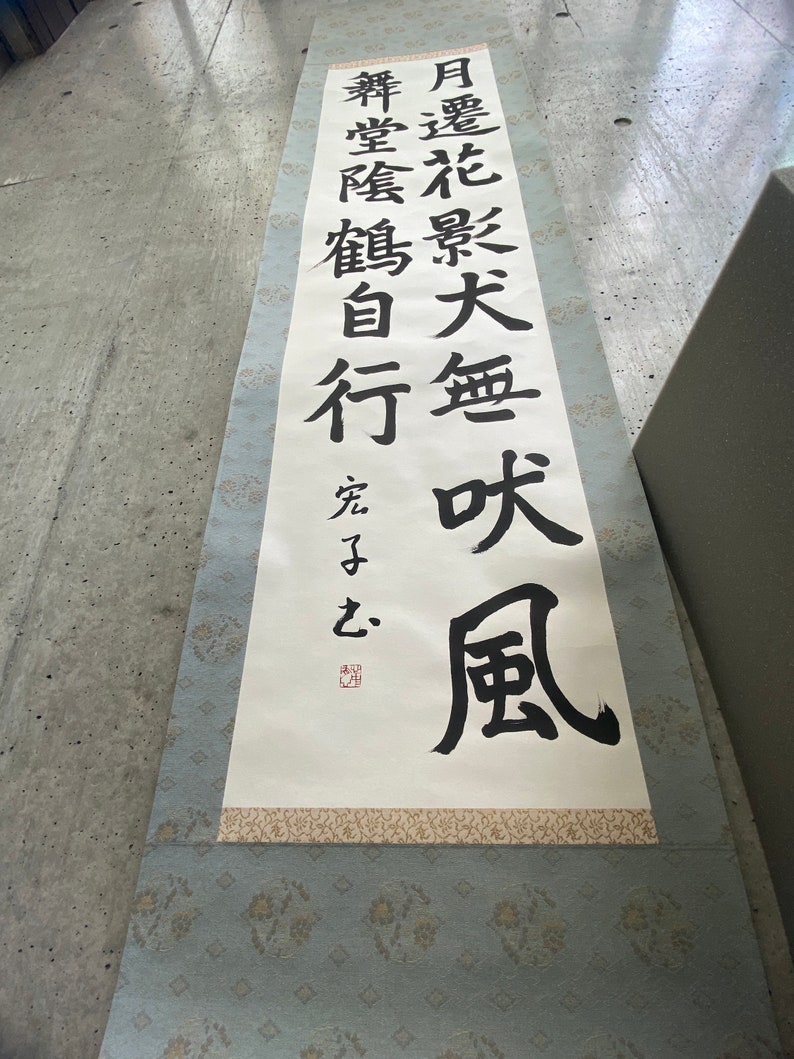 月遷花影犬無吠風
舞堂陰鶴自行
宏子书